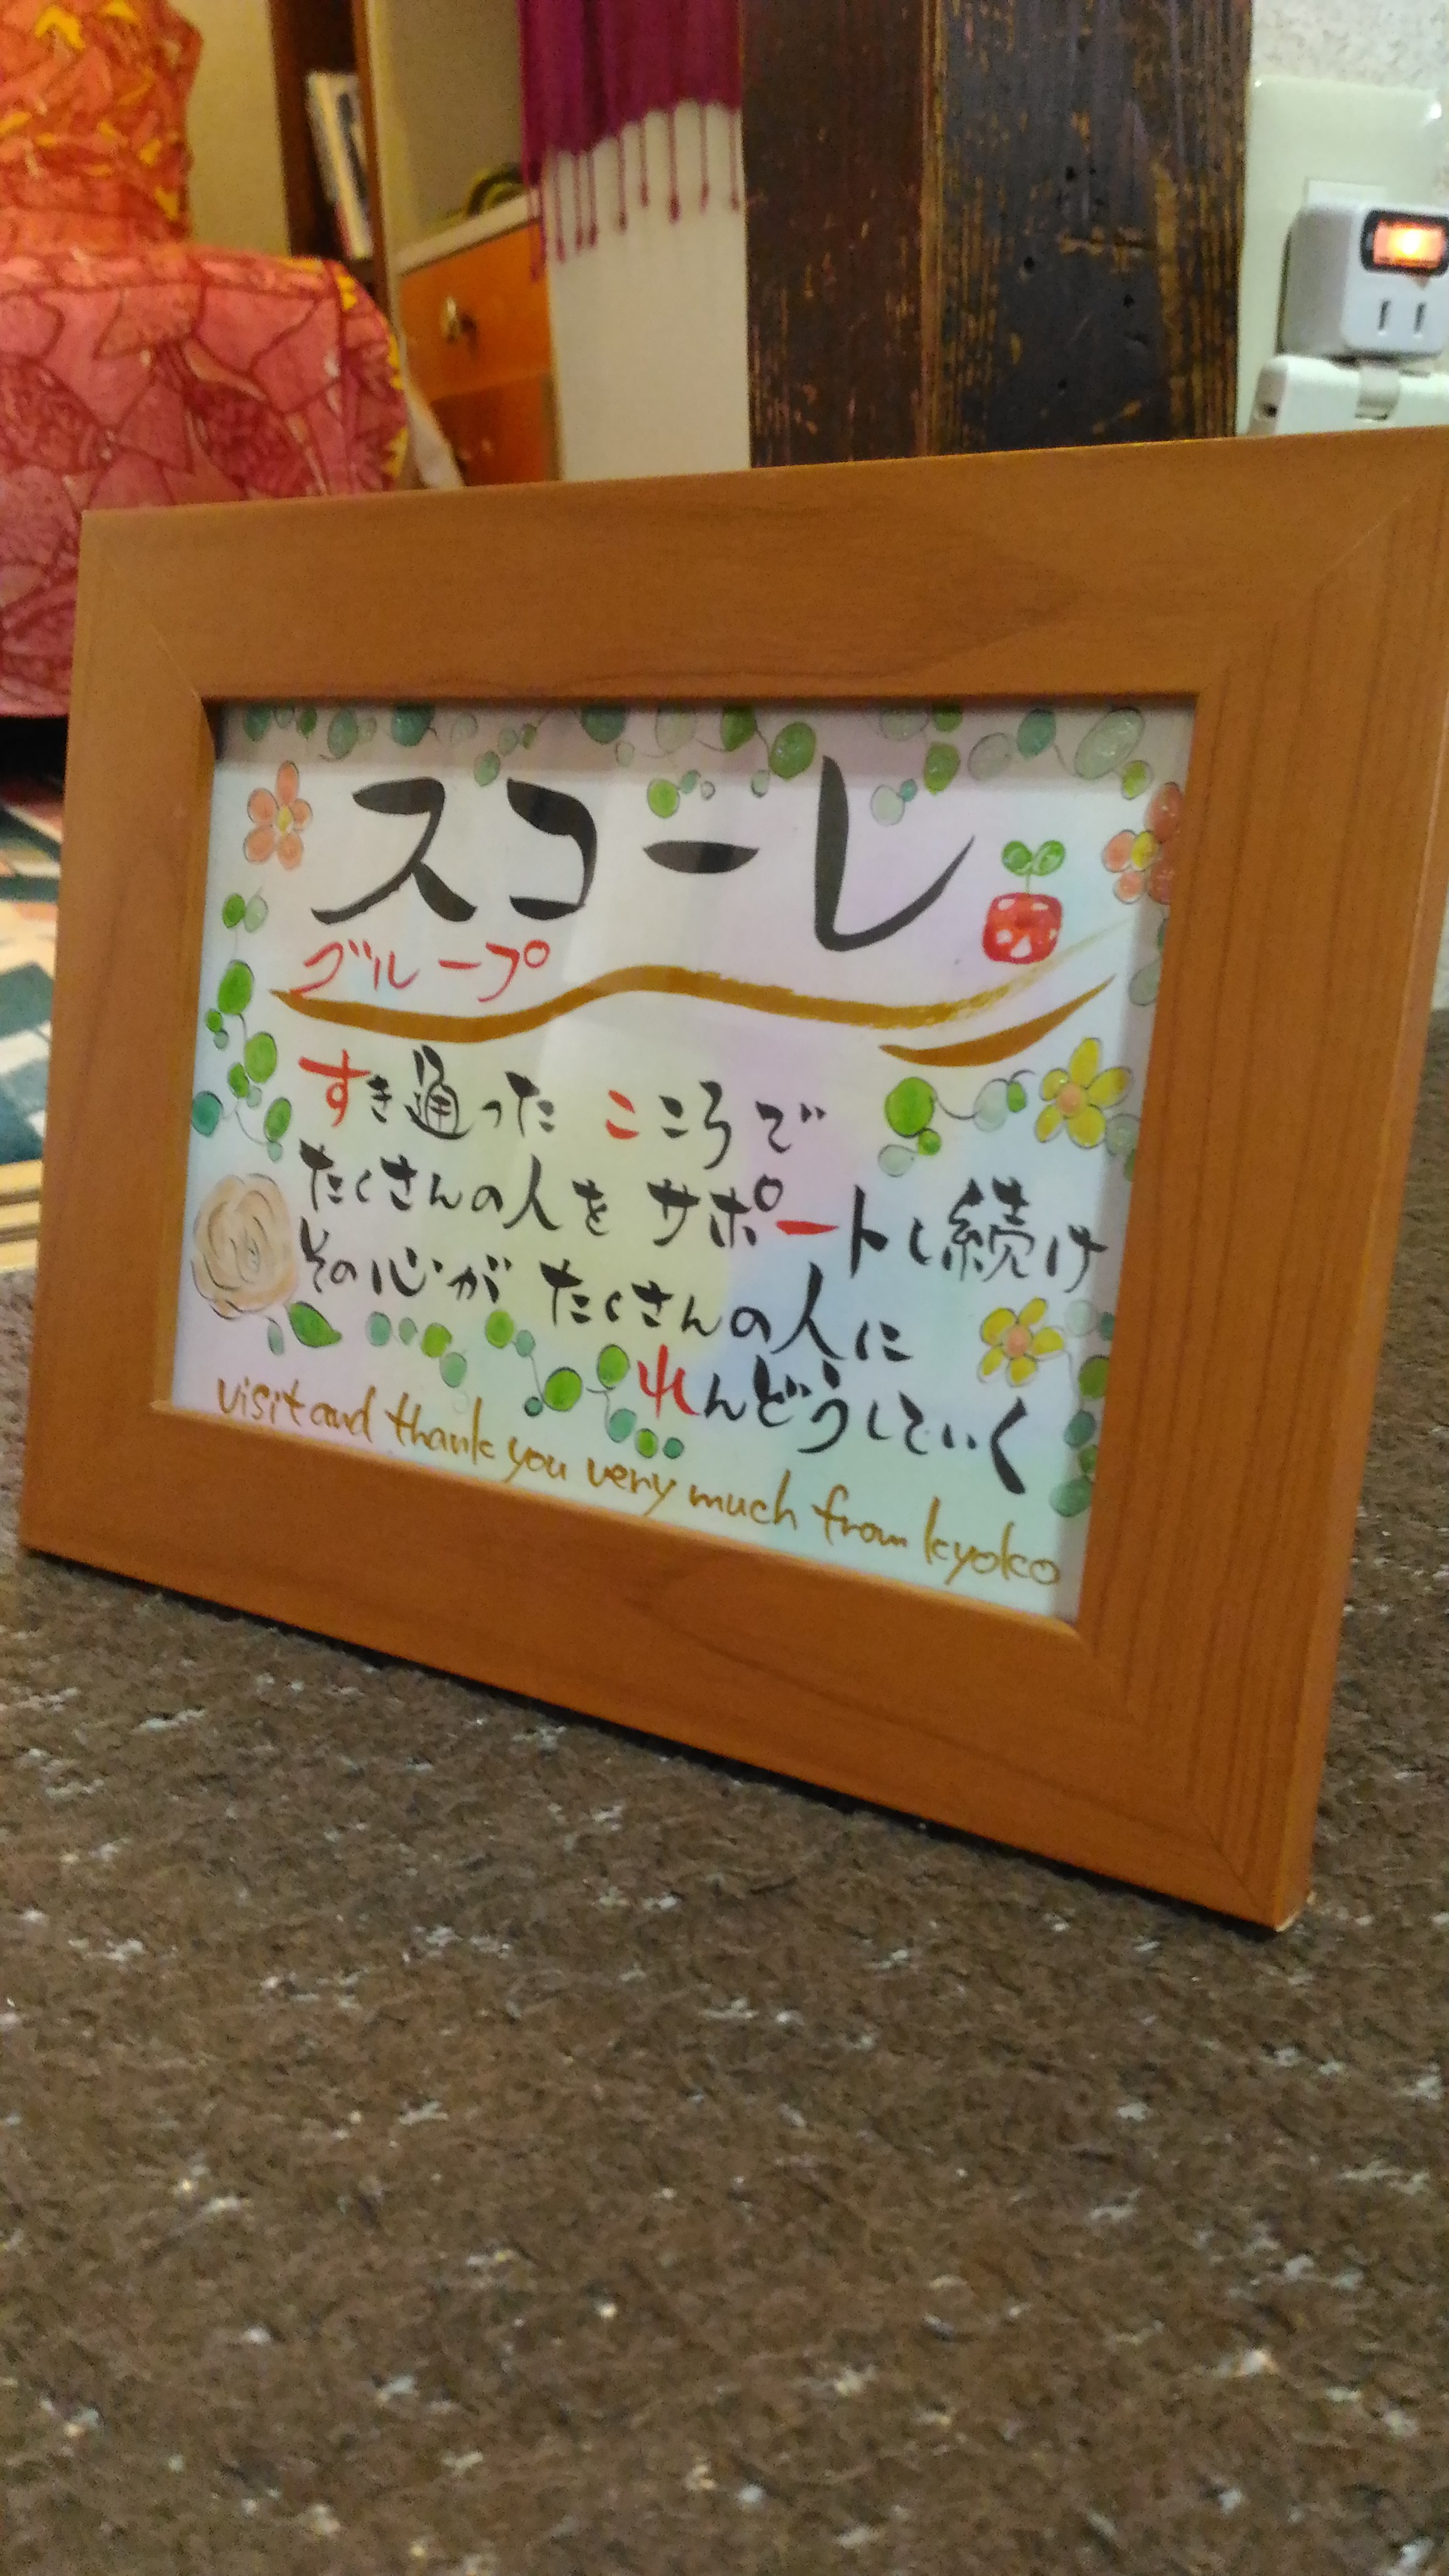 スコーレ
グループ
すき通ったこころで
たくさんの人をサポートし続け
その心がたくさんの人に
れんどうしていく
visit and thank you very much from kyoko